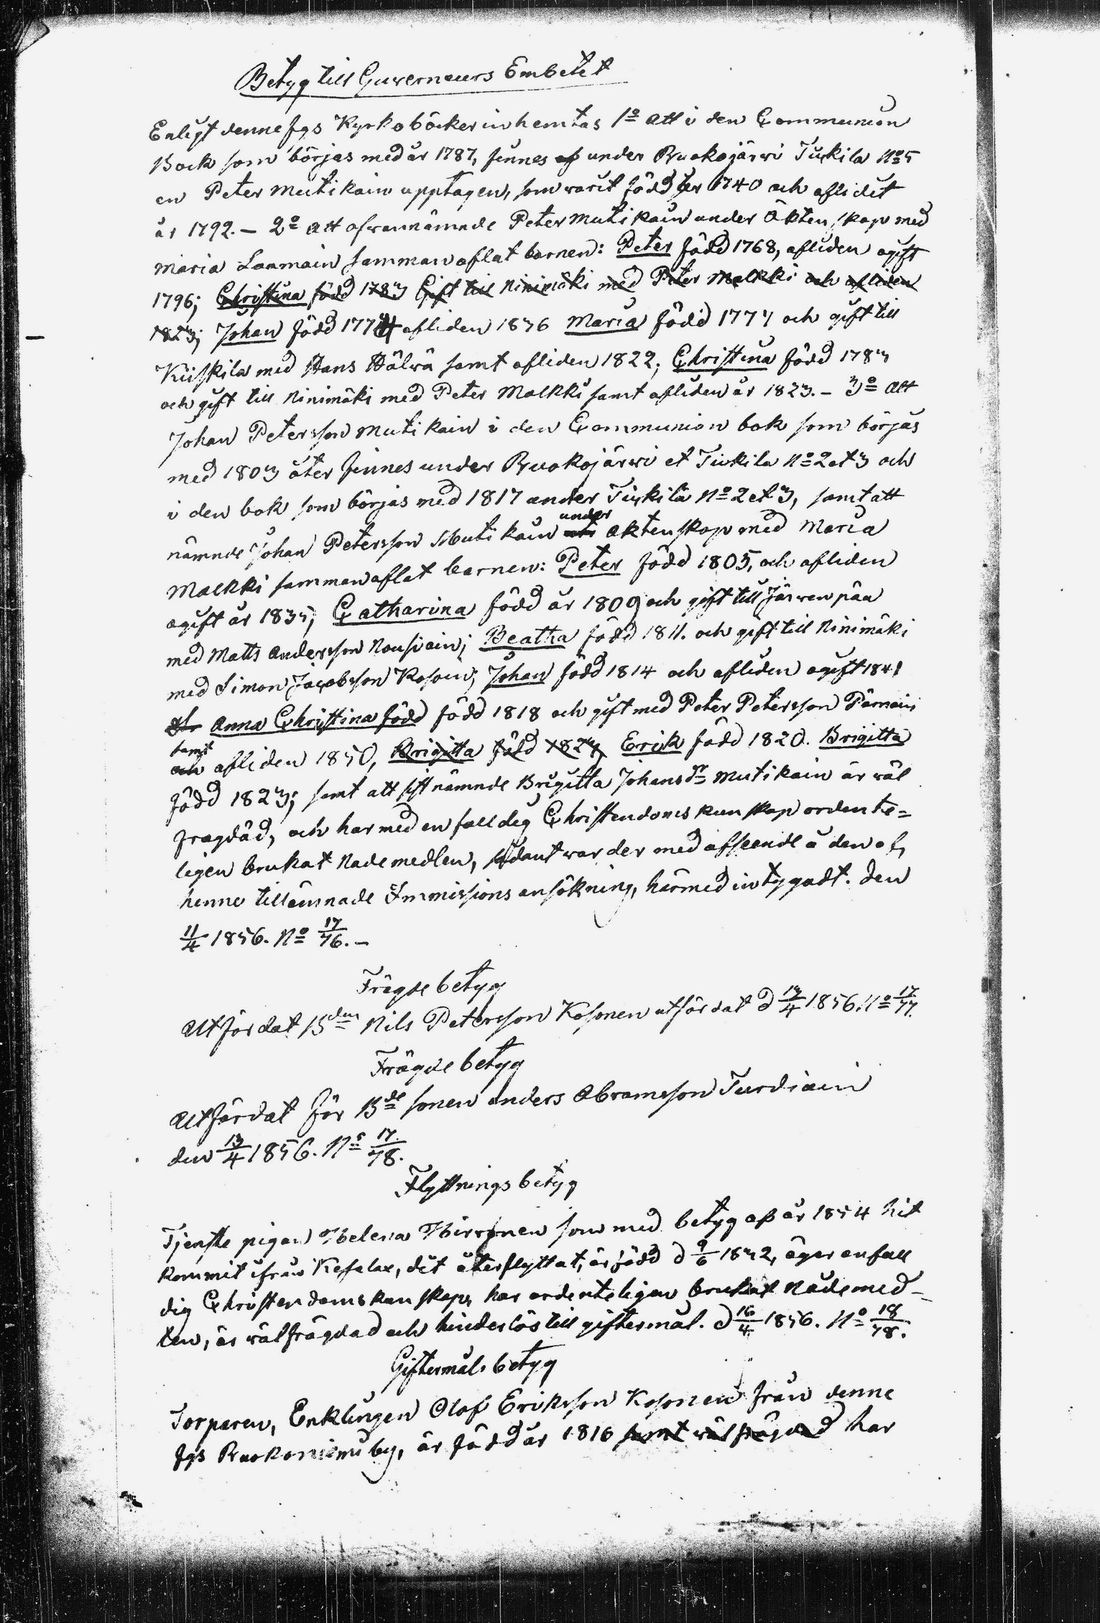 Betyg till Guverneurs Embetet
Enligt denne fgs Kyrkoböcker inhemtas 1o att i den Communion
Bock som börjas med år 1787, finnes under Ruokojärwi Tiukila No 5
en Peter Mutikain upptagen, som varit född år 1740 och aflidit
år 1792. – 2o att ofvannämnde Peter Mutikain under Äktenskap med
Maria Laamain sammanaflat barnen: Peter född 1768, afliden ogift
1796; Christina född 1783 Gift till Ninimäki med Peter Malkki och afliden
1823; Johan född 1774 afliden 1836 Maria född 1777 och gift till
Kiiskila med Hans Hälvä samt afliden 1822; Christina född 1783
och gift till Ninimäki med Peter Malkki samt afliden år 1823. – 3o att
Johan Petersson Mutikain i den Communion bok som börjas
med 1803 åter finnes under Ruokojärwi et Tiukila No 2 et 3 och
i den bok som börjas med 1817 under Tiukila No 2 et 3, samt att
nämnde Johan Petersson Mutikain under äktenskap med Maria
Malkki sammanaflat barnen: Peter född 1805, och afliden
ogift år 1835; Catharina född år 1809 och gift till Järwenpää
med Matts Andersson Nousiain; Beatha född 1811. och gift till Ninimäki
med Simon Jacobsson Kosoin; Johan född 1814 och afliden ogift 1841
Anna Christina född född 1818 och gift med Peter Petersson Pärnäin
samt
och afliden 1850, Brigitta född 1823, Erik född 1820. Brigitta
född 1823; samt att sistnämnde Brigitta Johansdr Mutikain är wäl
fragdad, och har med enfalldig Christendomskunskap ordente=
ligen brukat Nademedlen, sådant warder med afseende å den af
henne tillämnade Immissions ansökning, härmed intygadt. den
11/4 1856. No 17/76. –
Frägdebetyg
Utfördat Bdesonen Nils Petersson Kosonen utfördat d 13/4 1856. No 17/77.
Frägdebetyg
Utfärdat för Bde sonen Anders Abramsson Turdiain
den 13/4 1856. No 17/78.
Flyttningsbetyg
Tjenste pigan Helena Hirvonen som med betyg af år 1854 hit
kommit ifrån Kesälax, dit återflyttat, är född d 9/6 1832, äger enfall
dig Christendomskunskap, har ordenteligen brukat Nådemed-
len, är wälfrägdad och hinderslös till giftermål. d 16/4 1856. No 18/78.
Giftermålsbetyg
Torparen, Enklingen Olof Eriksson Kosonen från denne
fgs Ruokoniemi by, är född år 1816 samt wälfrägdad har